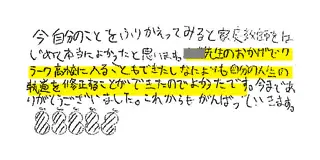 今自分のことをふりかえってみると家庭教師をは
じめて本当によかったと思います。先生のおかげでク
ラーク高校に入ることもできたしなによりも自分の人生の
軌道を修正することができたのでよかったです。今まであ
りがとうございました。これからもがんばっていきます。